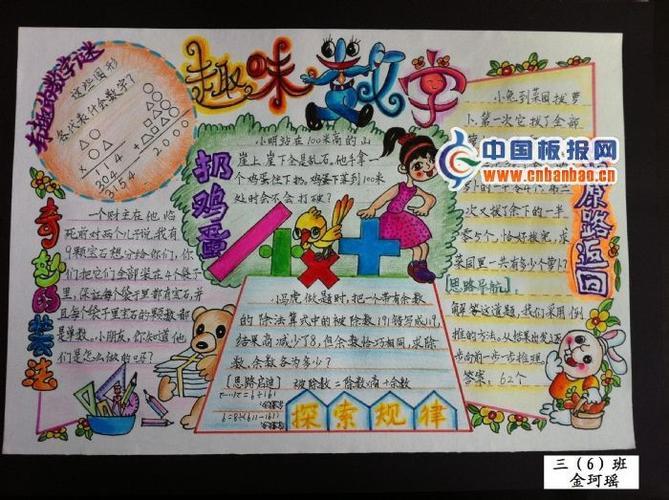 趣味数字
有趣的数学谜
这些图形
各代表什么数字?
△○
× ○△
114
304
3154
2000
奇妙的装法
一个财主在他临
死前对两个儿子说,我有
9颗宝石想分给你们,你
们把它们全部装在4个袋子
里,保证每个袋子里都有宝石,并
且每个袋子里宝石的颗数都
是单数。小朋友,你知道他
们是怎么做的吗?
扔鸡蛋
小明站在100米高的山
崖上,崖下全是乱石。他手拿一
个鸡蛋往下扔。鸡蛋下落到100米
处时会不会打破?
小马虎做题时,把一个带有余数
的除法算式中的被除数191错写成119,
结果商减少了8,但余数恰巧相同,求除
数、余数各为多少?
[思路启迪] 被除数=除数×商+余数
探索规律
原路返回
小兔到菜园拔萝
卜,第一次它拔了全部
次又拔了余下的一半
零5个,恰好拔完,求
菜园里一共有多少个萝卜?
[思路导航]
解答这道题,我们采用倒
推的方法。从结果出发,逐
步向前一步一步推理。
答案:62个
中国板报网
www.cnbanbao.cn
三(6)班
金珂瑶